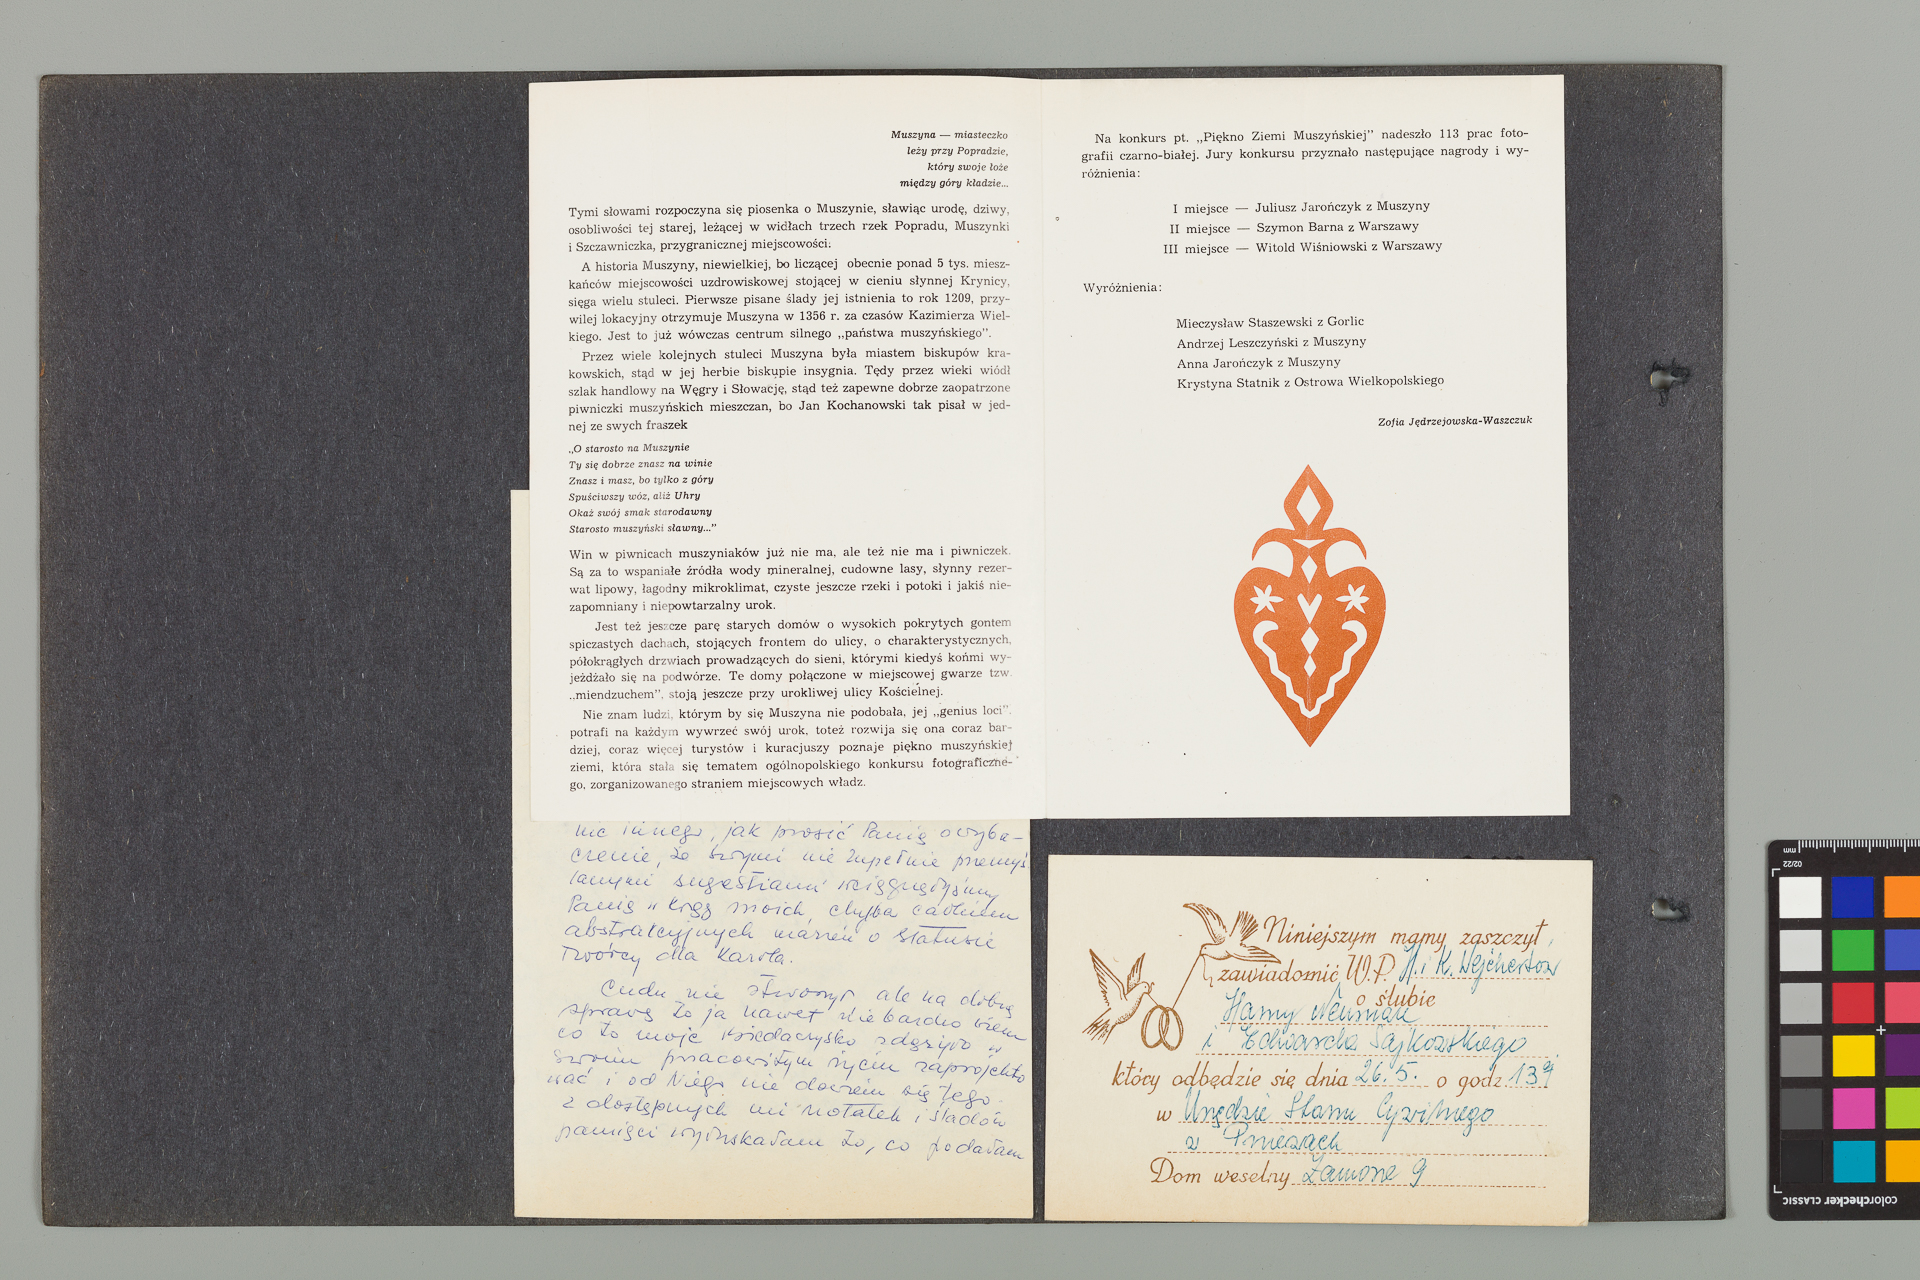 Muszyna — miasteczko
leży przy Popradzie,
który swoje łoże
między góry kładzie...
Tymi słowami rozpoczyna się piosenka o Muszynie, sławiąc urodę, dziwy,
osobliwości tej starej, leżącej w widłach trzech rzek Popradu, Muszynki
i Szczawniczka, przygranicznej miejscowości.
A historia Muszyny, niewielkiej, bo liczącej obecnie ponad 5 tys. miesz-
kańców miejscowości uzdrowiskowej stojącej w cieniu słynnej Krynicy,
sięga wielu stuleci. Pierwsze pisane ślady jej istnienia to rok 1209, przy-
wilej lokacyjny otrzymuje Muszyna w 1356 r. za czasów Kazimierza Wiel-
kiego. Jest to już wówczas centrum silnego „państwa muszyńskiego".
Przez wiele kolejnych stuleci Muszyna była miastem biskupów kra-
kowskich, stąd w jej herbie biskupie insygnia. Tędy przez wieki wiódł
szlak handlowy na Węgry i Słowację, stąd też zapewne dobrze zaopatrzone
piwniczki muszyńskich mieszczan, bo Jan Kochanowski tak pisał w jed-
nej ze swych fraszek
„O starosto na Muszynie
Ty się dobrze znasz na winie
Znasz i masz, bo tylko z góry
Spuściwszy wóz, aliż Uhry
Okaż swój smak starodawny
Starosto muszyński sławny..."
Win w piwnicach muszyniaków już nie ma, ale też nie ma i piwniczek.
Są za to wspaniałe źródła wody mineralnej, cudowne lasy, słynny rezer-
wat lipowy, łagodny mikroklimat, czyste jeszcze rzeki i potoki i jakiś nie-
zapomniany i niepowtarzalny urok.
Jest też jeszcze parę starych domów o wysokich pokrytych gontem
spiczastych dachach, stojących frontem do ulicy, o charakterystycznych,
półokrągłych drzwiach prowadzących do sieni, którymi kiedyś końmi wy-
jeżdżało się na podwórze. Te domy połączone w miejscowej gwarze tzw.
„miendzuchem", stoją jeszcze przy urokliwej ulicy Kościelnej.
Nie znam ludzi, którym by się Muszyna nie podobała, jej „genius loci".
potrafi na każdym wywrzeć swój urok, toteż rozwija się ona coraz bar-
dziej, coraz więcej turystów i kuracjuszy poznaje piękno muszyńskiej
ziemi, która stała się tematem ogólnopolskiego konkursu fotograficzne-
go, zorganizowanego straniem miejscowych władz.
Na konkurs pt. „Piękno Ziemi Muszyńskiej" nadeszło 113 prac foto-
grafii czarno-białej. Jury konkursu przyznało następujące nagrody i wy-
różnienia:
I miejsce — Juliusz Jarończyk z Muszyny
II miejsce — Szymon Barna z Warszawy
III miejsce — Witold Wiśniowski z Warszawy
Wyróżnienia:
Mieczysław Staszewski z Gorlic
Andrzej Leszczyński z Muszyny
Anna Jarończyk z Muszyny
Krystyna Statnik z Ostrowa Wielkopolskiego
Zofia Jędrzejowska-Waszczuk
nic innego, jak prosić Panią o wyba-
czenie, że swymi nie zupełnie przemyś
lanymi sugestiami wciągnęłyśmy
Panią w krąg moich, chyba całkiem
abstrakcyjnych marzeń o statusie
Twórcy dla Karola.
Cudu nie stworzył ale na dobrą
sprawę to ja nawet nie bardzo wiem
co to moje biedaczysko zdążyło w
swoim pracowitym życiu zaprojekto
wać i od Niego nie dowiem się tego.
z dostępnych mi notatek i śladów
pamięci wyłuskałam to, co podałam
Niniejszym mamy zaszczyt
zawiadomić W.P. H. i K. Wejchertów
o ślubie
Hanny Neuman
i Edwarda Sajkowskiego
który odbędzie się dnia 26.5. o godz. 13
w Urzędzie Stanu Cywilnego
w Pniewach
Dom weselny 9
mm
02/22
colorchecker CLASSIC